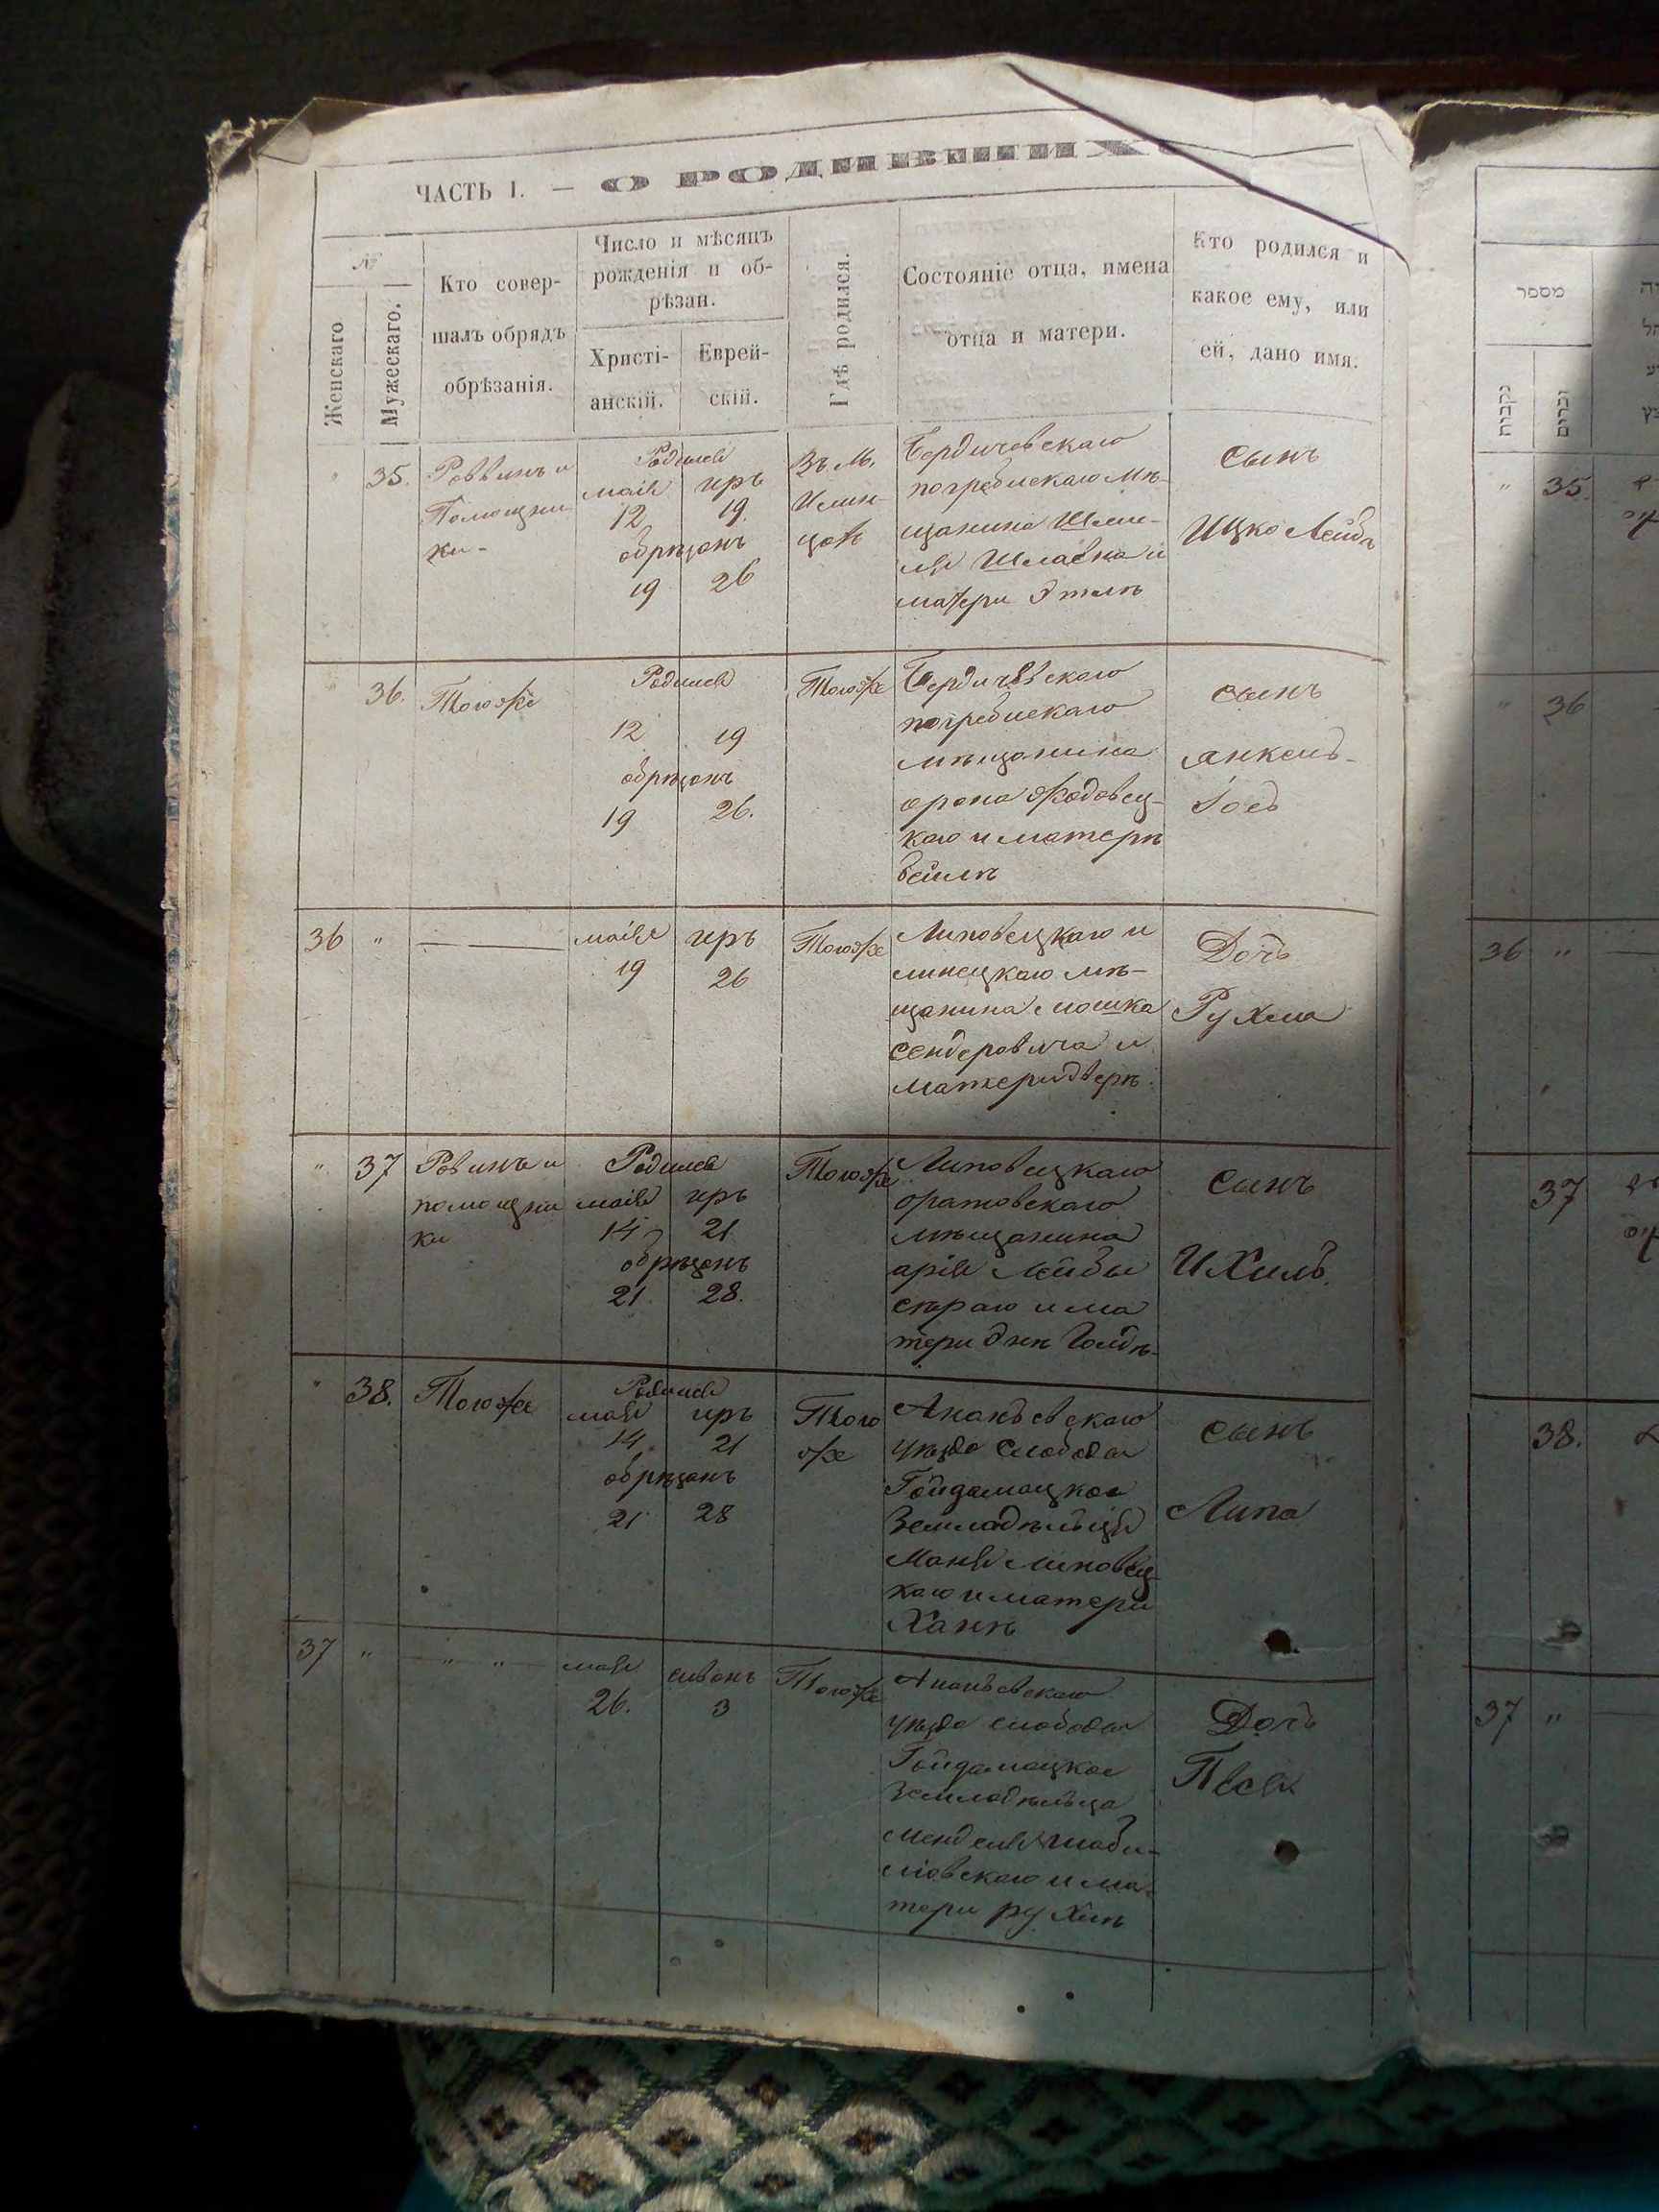 ЧАСТЬ I. — О РОДИВШИХС
№
Женскаго
Мужескаго.
Кто совер-
шалъ обрядъ
обрѣзанія.
Число и мѣсяцъ
рожденія и об-
рѣзан.
Христі-
анскій.
Еврей-
скій.
Гдѣ родился.
Состояніе отца, имена
отца и матери.
Кто родился и
какое ему, или
ей, дано имя.
" 35.
Раввинъ и
Помощни
ки-
Родился
маія иръ
12 19.
обрѣзанъ
19 26
Въ м.
Илин-
цах
Бердичевскаго
погребискаго мѣ-
щанина Шми-
ля и
матери Этелѣ
сынъ
Ицко Лейбъ
" 36.
Тогоже
Родился
12 19
обрѣзанъ
19 26.
Тогоже
Бердичевскаго
погребискаго
мѣщанина
арона
каго и матерѣ
Бейлѣ
сынъ
Янкель-
36 "
маія иръ
19 26
Тогоже
Липовецкаго и
линецкаго мѣ-
щанина мошка
сендеровича и
матери двери
Дочь
Рухля
" 37
Равинъ и
помощни
ки
Родился
маія иръ
14 21
обрѣзанъ
21 28.
Тогоже
Липовецкаго
оратовскаго
мѣщанина
арія Лейбы
сѣраго и ма
тери Голдѣ-
сынъ
Ихиль
" 38.
Тогоже
Родился
мая иръ
14 21
обрѣзанъ
21 28
Того
же
Ананьевскаго
уѣзда слободы
Гайдамацкое
Земладѣльця
Маня липовец-
каго и матери
Ханѣ
сынъ
Липа
37 " " "
мая сиванъ
26. 3
Тогоже
Ананьевскаго
уѣзда слободы
Гайдамацкое
Земладѣльца
менделя
и ма-
тери рухлѣ
Дочь
Песя
מספר
נקבות
זכרים
" 35.
" 36
36 "
37
38.
37 "